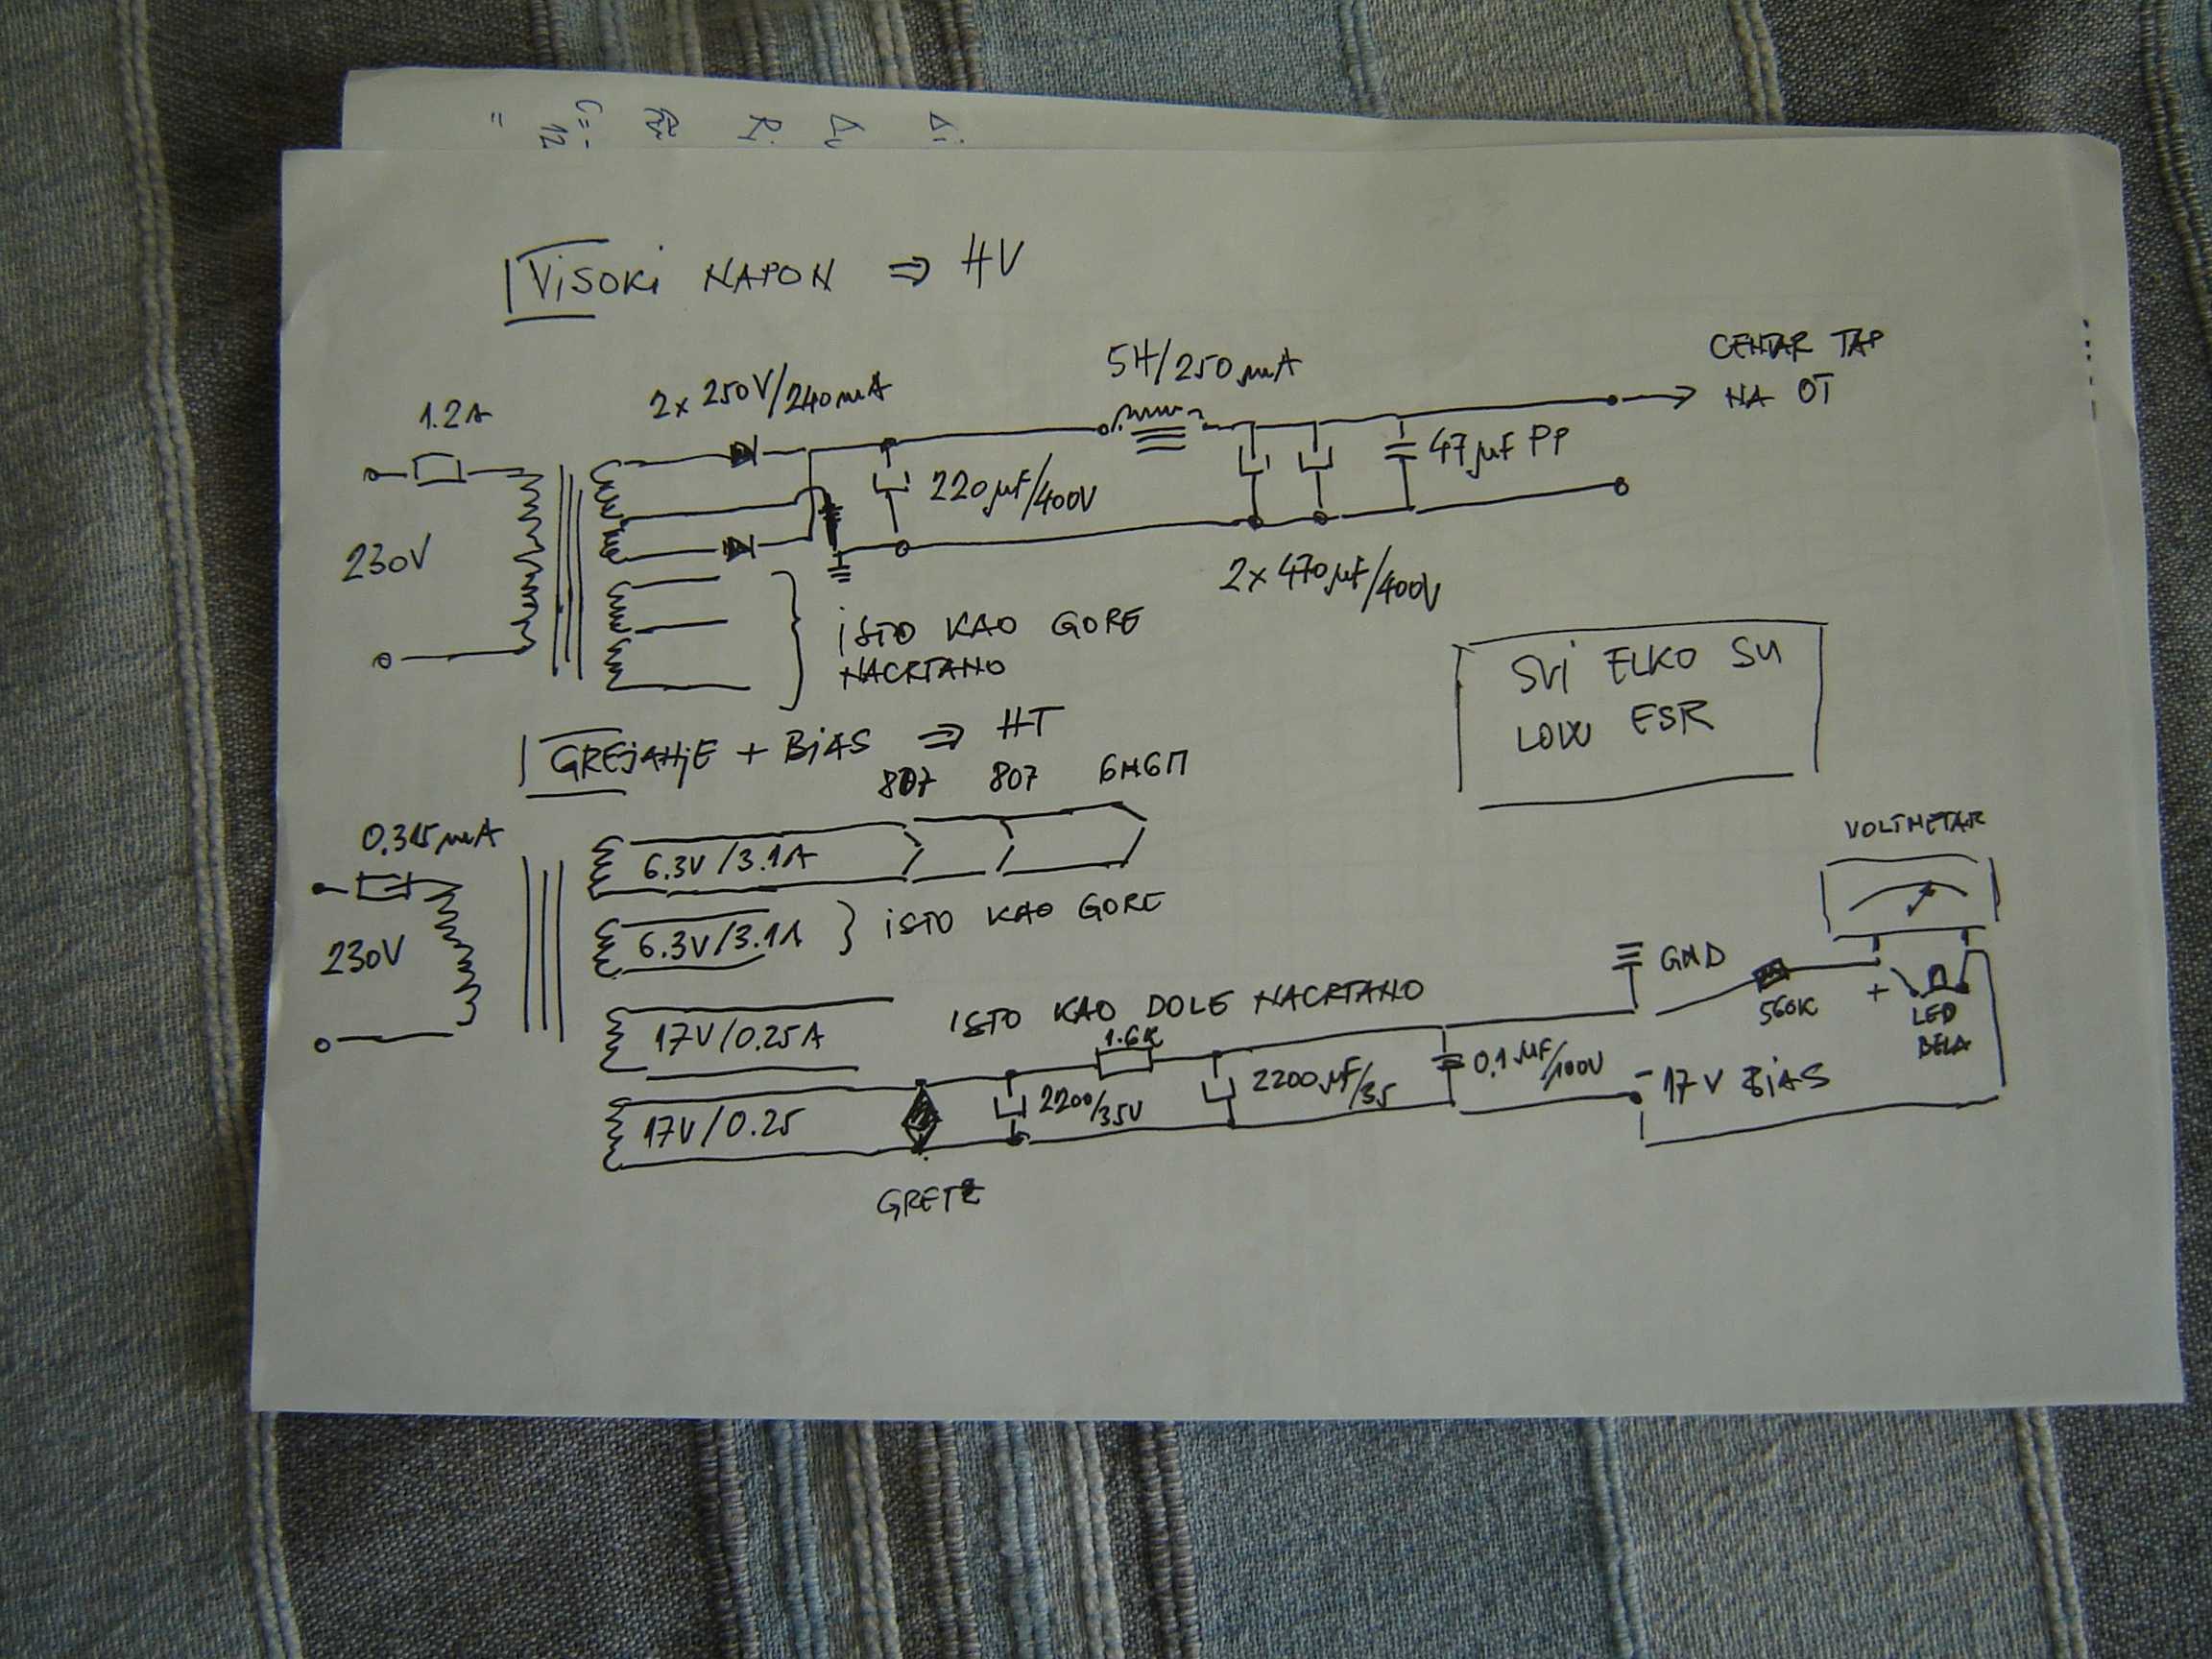 VISOKI NAPON ⇒ HV
1.2A
2x 250V/240mA
5H/250mA
CENTAR TAP
NA OT
230V
220µF/400V
47µF PP
2x 470µF/400V
ISTO KAO GORE
NACRTANO
SVI ELKO SU
LOW ESR
GREJANJE + BIAS ⇒ HT
807 807 6Н6П
0.315mA
230V
6.3V/3.1A
6.3V/3.1A } ISTO KAO GORE
VOLTMETAR
GND
560K
+
LED
BELA
17V/0.25A
ISTO KAO DOLE NACRTANO
1.6K
17V/0.25
2200/35V
2200µF/35
0.1µF/100V
-17V BIAS
GRETZ